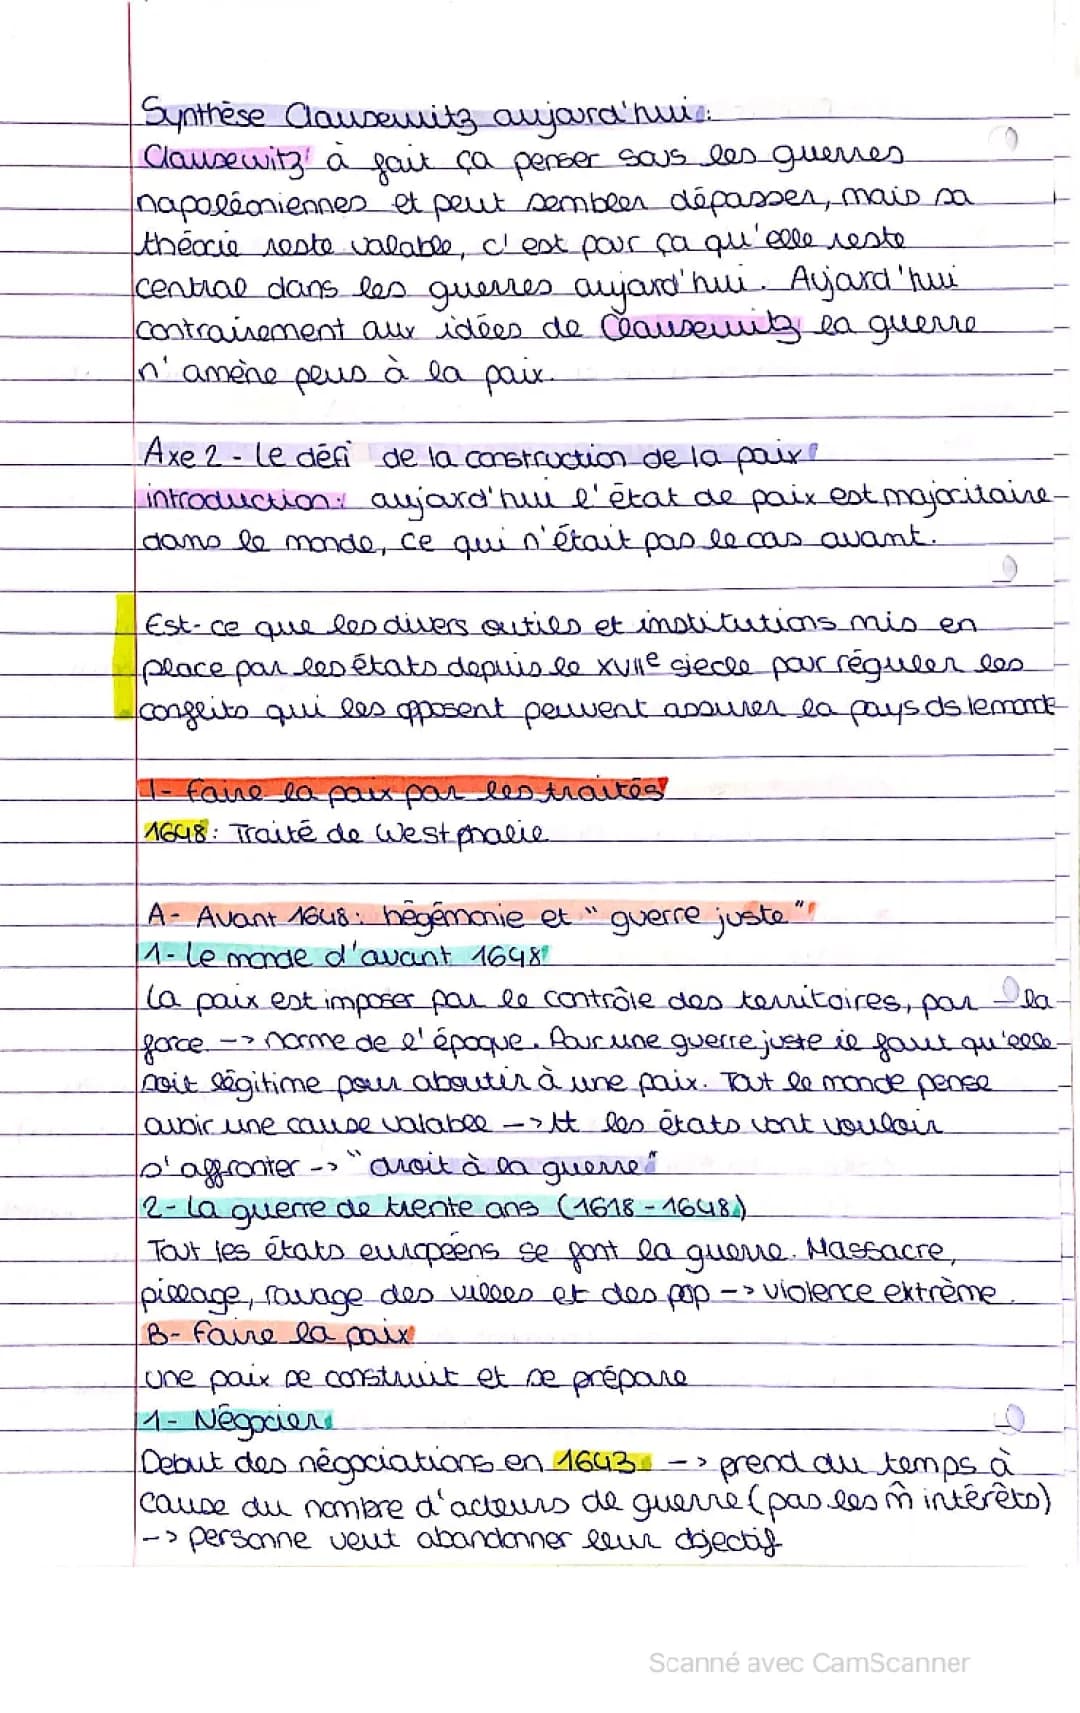 Synthèse Clausewitz aujourd'hui:
Clausewitz à fait ça penser sous les guerres
napoléoniennes et peut sembler dépasser, mais sa
théorie reste valable, c'est pour ça qu'elle reste
central dans les guerres aujourd'hui. Aujard'hui
contrairement aux idées de Clausewitz la guerre
n'amène plus à la paix.
Axe 2 - Le défi de la construction de la paix
introduction: aujourd'hui l'état de paix est majoritaire
dans le monde, ce qui n'était pas le cas avant.
Est-ce que les divers outils et institutions mis en
place par les états depuis le XVIIe siecle pour réguler les
conflits qui les opposent peuvent assurer la pays ds le monde
I- Faire la paix par les traités
1648: Traité de Westphalie
A- Avant 1648: hégémonie et "guerre juste"
1- Le monde d'avant 1648
La paix est imposer par le contrôle des territoires, par la
force --> norme de l'époque. Pour une guerre juste il faut qu'elle
soit légitime pour aboutir à une paix. Tout le monde pense
avoir une cause valable --> tt les états vont vouloir
s'affronter --> "droit à la guerre"
2- La guerre de trente ans (1618 - 1648)
Tout les états européens se font la guerre. Massacre,
pillage, ravage des villes et des pop --> violence extrème.
B- Faire la paix
une paix se construit et se prépare
1- Négocier
Debut des négociations en 1643 --> prend du temps à
cause du nombre d'acteurs de guerre (pas les m̂ intérêts)
--> personne veut abandonner leur objectif
Scanné avec CamScanner